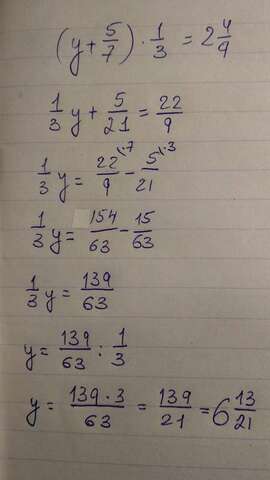 (y + 5/7) · 1/3 = 2 4/9
1/3 y + 5/21 = 22/9
1/3 y = 22/9 \·7 - 5/21 \·3
1/3 y = 154/63 - 15/63
1/3 y = 139/63
y = 139/63 : 1/3
y = 139·3/63 = 139/21 = 6 13/21